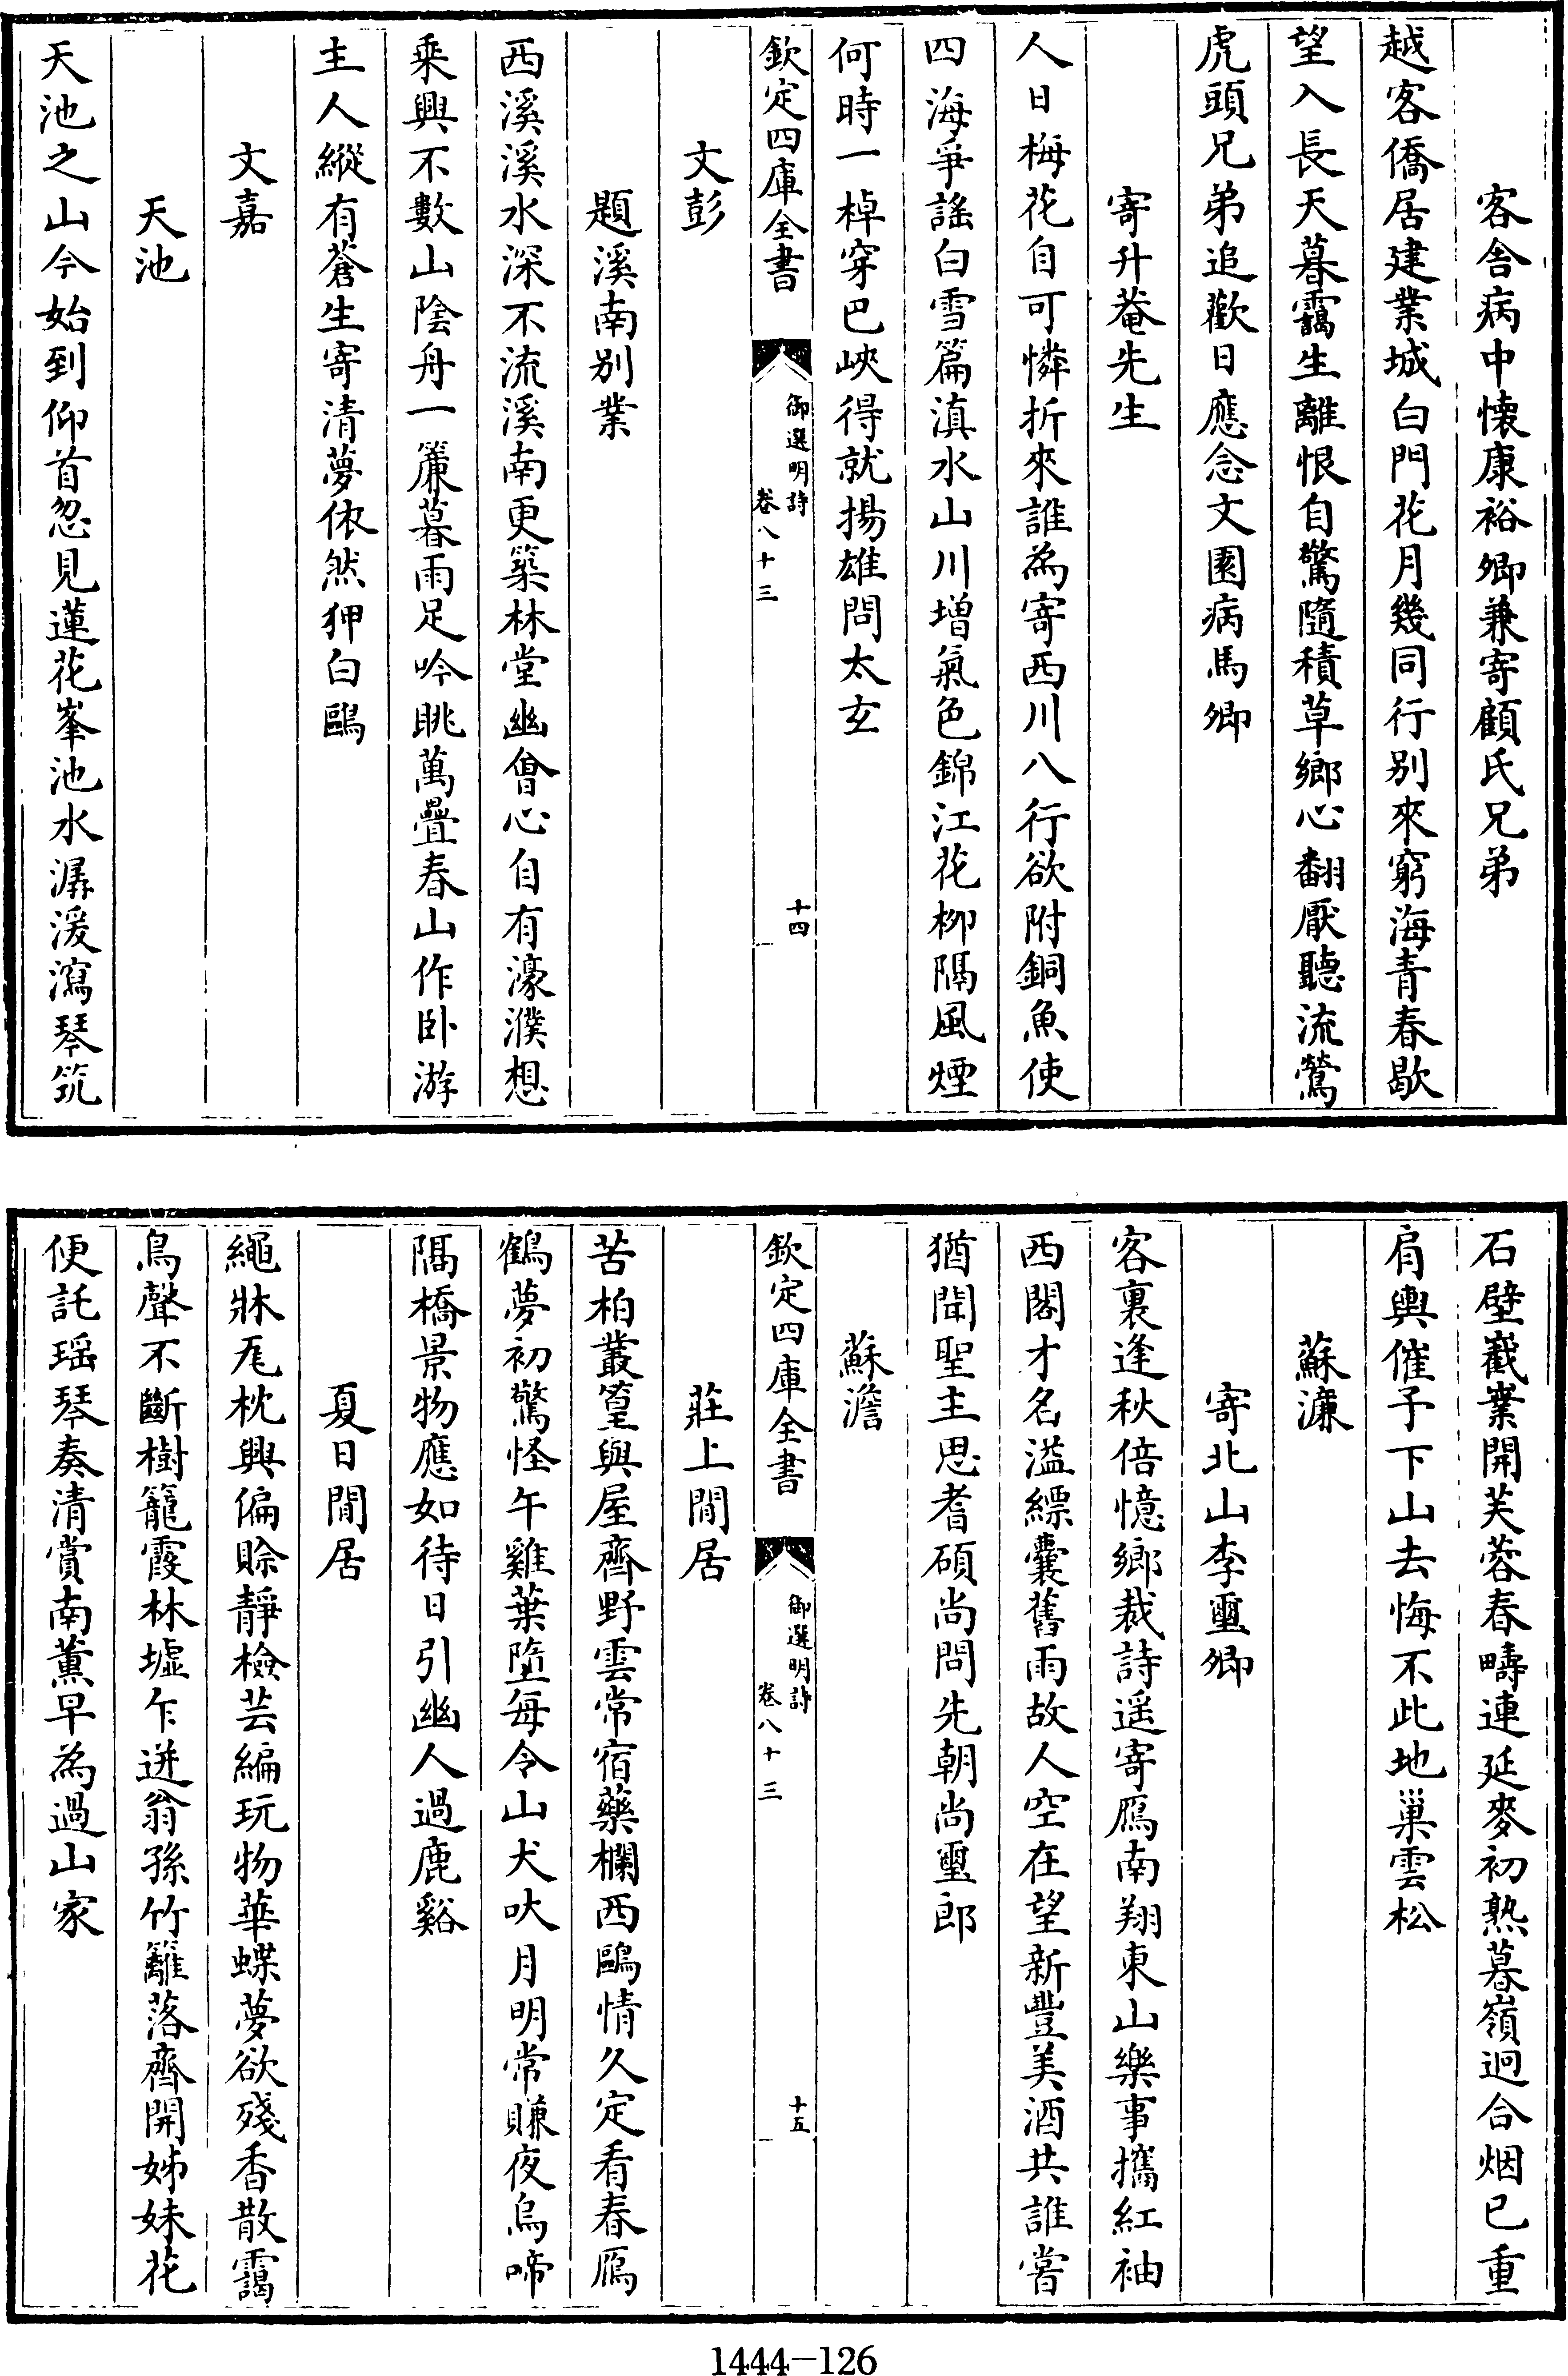 客舍病中懷康裕卿兼寄顧氏兄弟
越客僑居建業城白門花月幾同行别來窮海青春歇
望入長天暮靄生離恨自驚隨積草鄉心翻厭聽流鶯
虎頭兄弟追歡日應念文園病馬卿
寄升菴先生
人日梅花自可憐折來誰為寄西川八行欲附銅魚使
四海爭謠白雪篇滇水山川增氣色錦江花柳隔風煙
何時一棹穿巴峽得就揚雄問太玄
欽定四庫全書
御選明詩
卷八十三
十四
文彭
題溪南别業
西溪溪水深不流溪南更築林堂幽會心自有濠濮想
乘興不數山陰舟一簾暮雨足吟眺萬疊春山作卧游
主人縱有蒼生寄清夢依然狎白鷗
文嘉
天池
天池之山今始到仰首忽見蓮花峯池水潺湲瀉琴筑
石壁巀嶪開芙蓉春疇連延麥初熟暮嶺迴合烟已重
肩輿催予下山去悔不此地巢雲松
蘇濂
寄北山李璽卿
客裏逢秋倍憶鄉裁詩遥寄鴈南翔東山樂事攜紅袖
西閣才名溢縹囊舊雨故人空在望新豐美酒共誰嘗
猶聞聖主思耆碩尚問先朝尚璽郎
蘇澹
欽定四庫全書
御選明詩
卷八十三
十五
莊上閒居
苦柏叢篁與屋齊野雲常宿藥欄西鷗情久定看春鴈
鶴夢初驚怪午雞葉墮每令山犬吠月明常賺夜烏啼
隔橋景物應如待日引幽人過鹿谿
夏日閒居
繩牀瓦枕興偏賒靜檢芸編玩物華蝶夢欲殘香散靄
鳥聲不斷樹籠霞林墟乍迸翁孫竹籬落齊開姊妹花
便託瑶琴奏清賞南薰早為過山家
1444-126